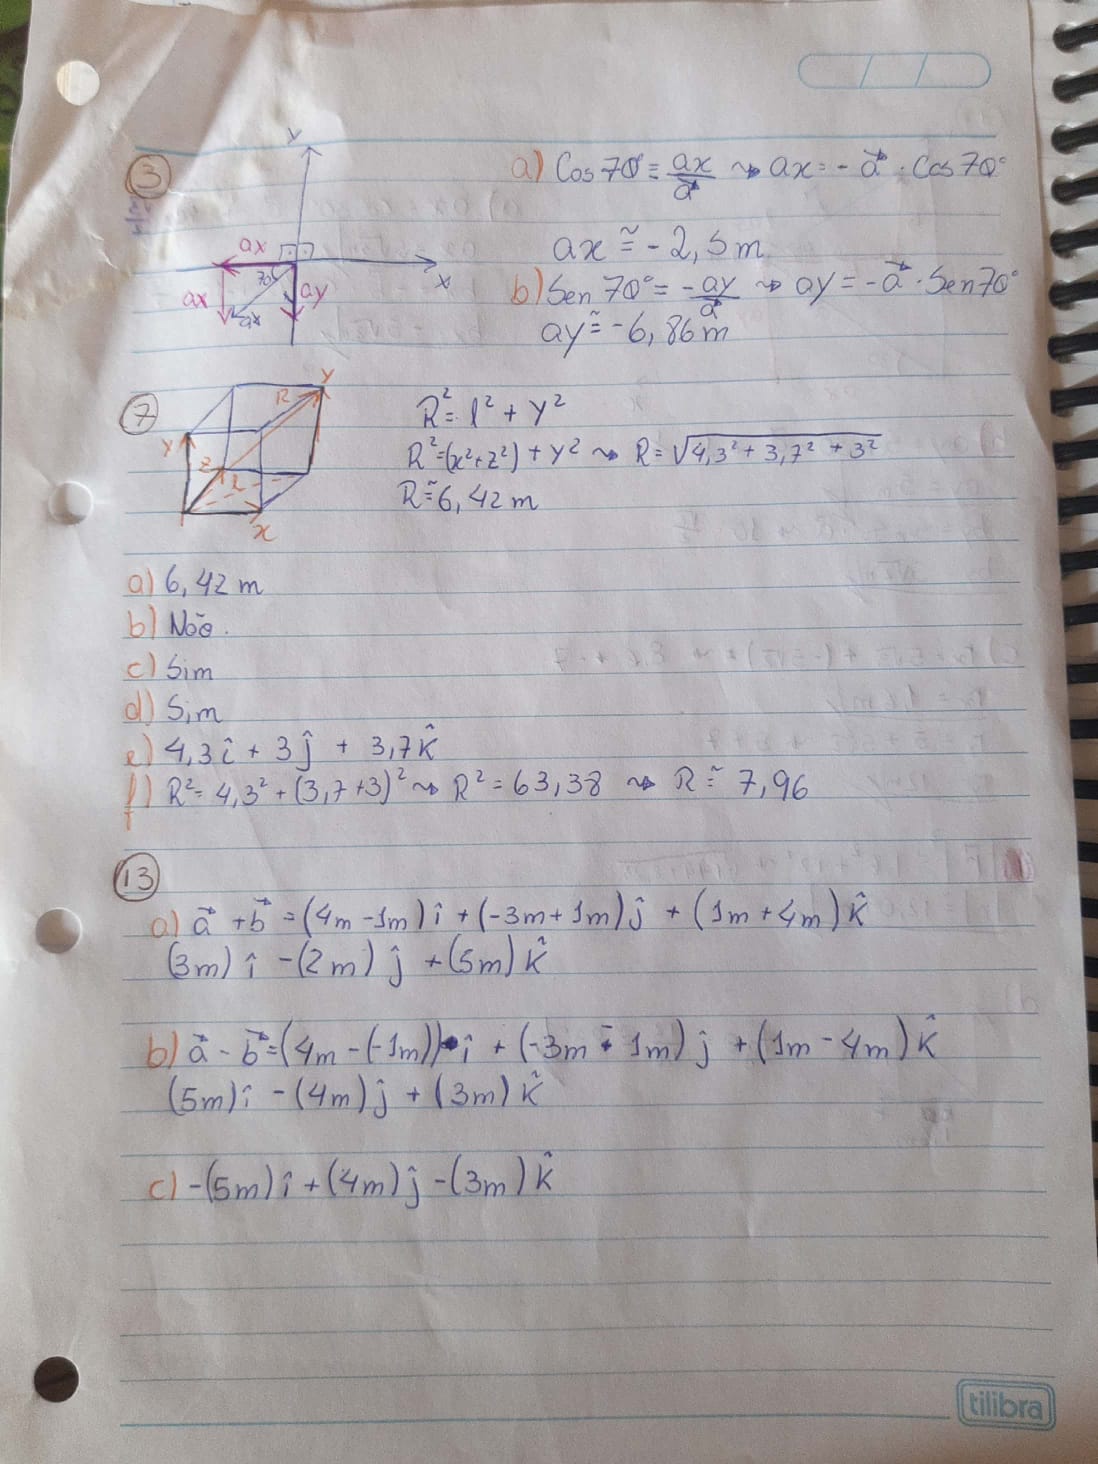 3
a) Cos 70° = ax/a⃗ ⇝ ax = - a⃗ · Cos 70°
ax ≅ - 2,5m
b) Sen 70° = -ay/a⃗ ⇝ ay = -a⃗ · Sen 70°
ay ≅ -6,86m
y
x
ax
70
ax
ay
ax
7
R² = l² + y²
R² = (x² + z²) + y² ⇝ R = √4,3² + 3,7² + 3²
R ≅ 6,42m
y
R
y
z
l
x
a) 6,42 m
b) Não.
c) Sim
d) Sim
e) 4,3 î + 3 ĵ + 3,7 k̂
f) R² = 4,3² + (3,7 + 3)² ⇝ R² = 63,38 ⇝ R ≅ 7,96
13
a) a⃗ + b⃗ = (4m - 1m) î + (-3m + 1m) ĵ + (1m + 4m) k̂
(3m) î - (2m) ĵ + (5m) k̂
b) a⃗ - b⃗ = (4m - (-1m)) î + (-3m - 1m) ĵ + (1m - 4m) k̂
(5m) î - (4m) ĵ + (3m) k̂
c) -(5m) î + (4m) ĵ - (3m) k̂
tilibra